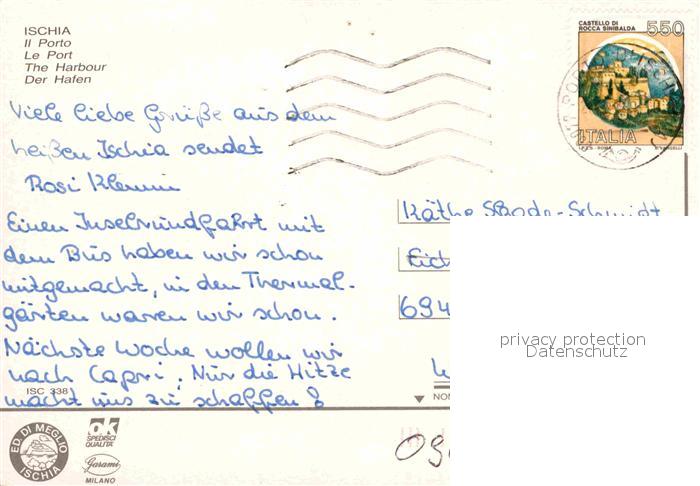 ISCHIA
Il Porto
Le Port
The Harbour
Der Hafen
CASTELLO DI
ROCCA SINIBALDA
550
ITALIA
Viele liebe Grüße aus dem
heißen Ischia sendet
Rosi Klemm
Einen Inselrundfahrt mit
dem Bus haben wir schon
mitgemacht, in den Thermal-
gärten waren wir schon.
Nächste Woche wollen wir
nach Capri. Nur die Hitze
macht uns zu schaffen!
Käthe
694
privacy protection
Datenschutz
ISC 338
ED. DI MEGLIO
ISCHIA
ok
SPEDISCI
QUALITA'
Garami
MILANO